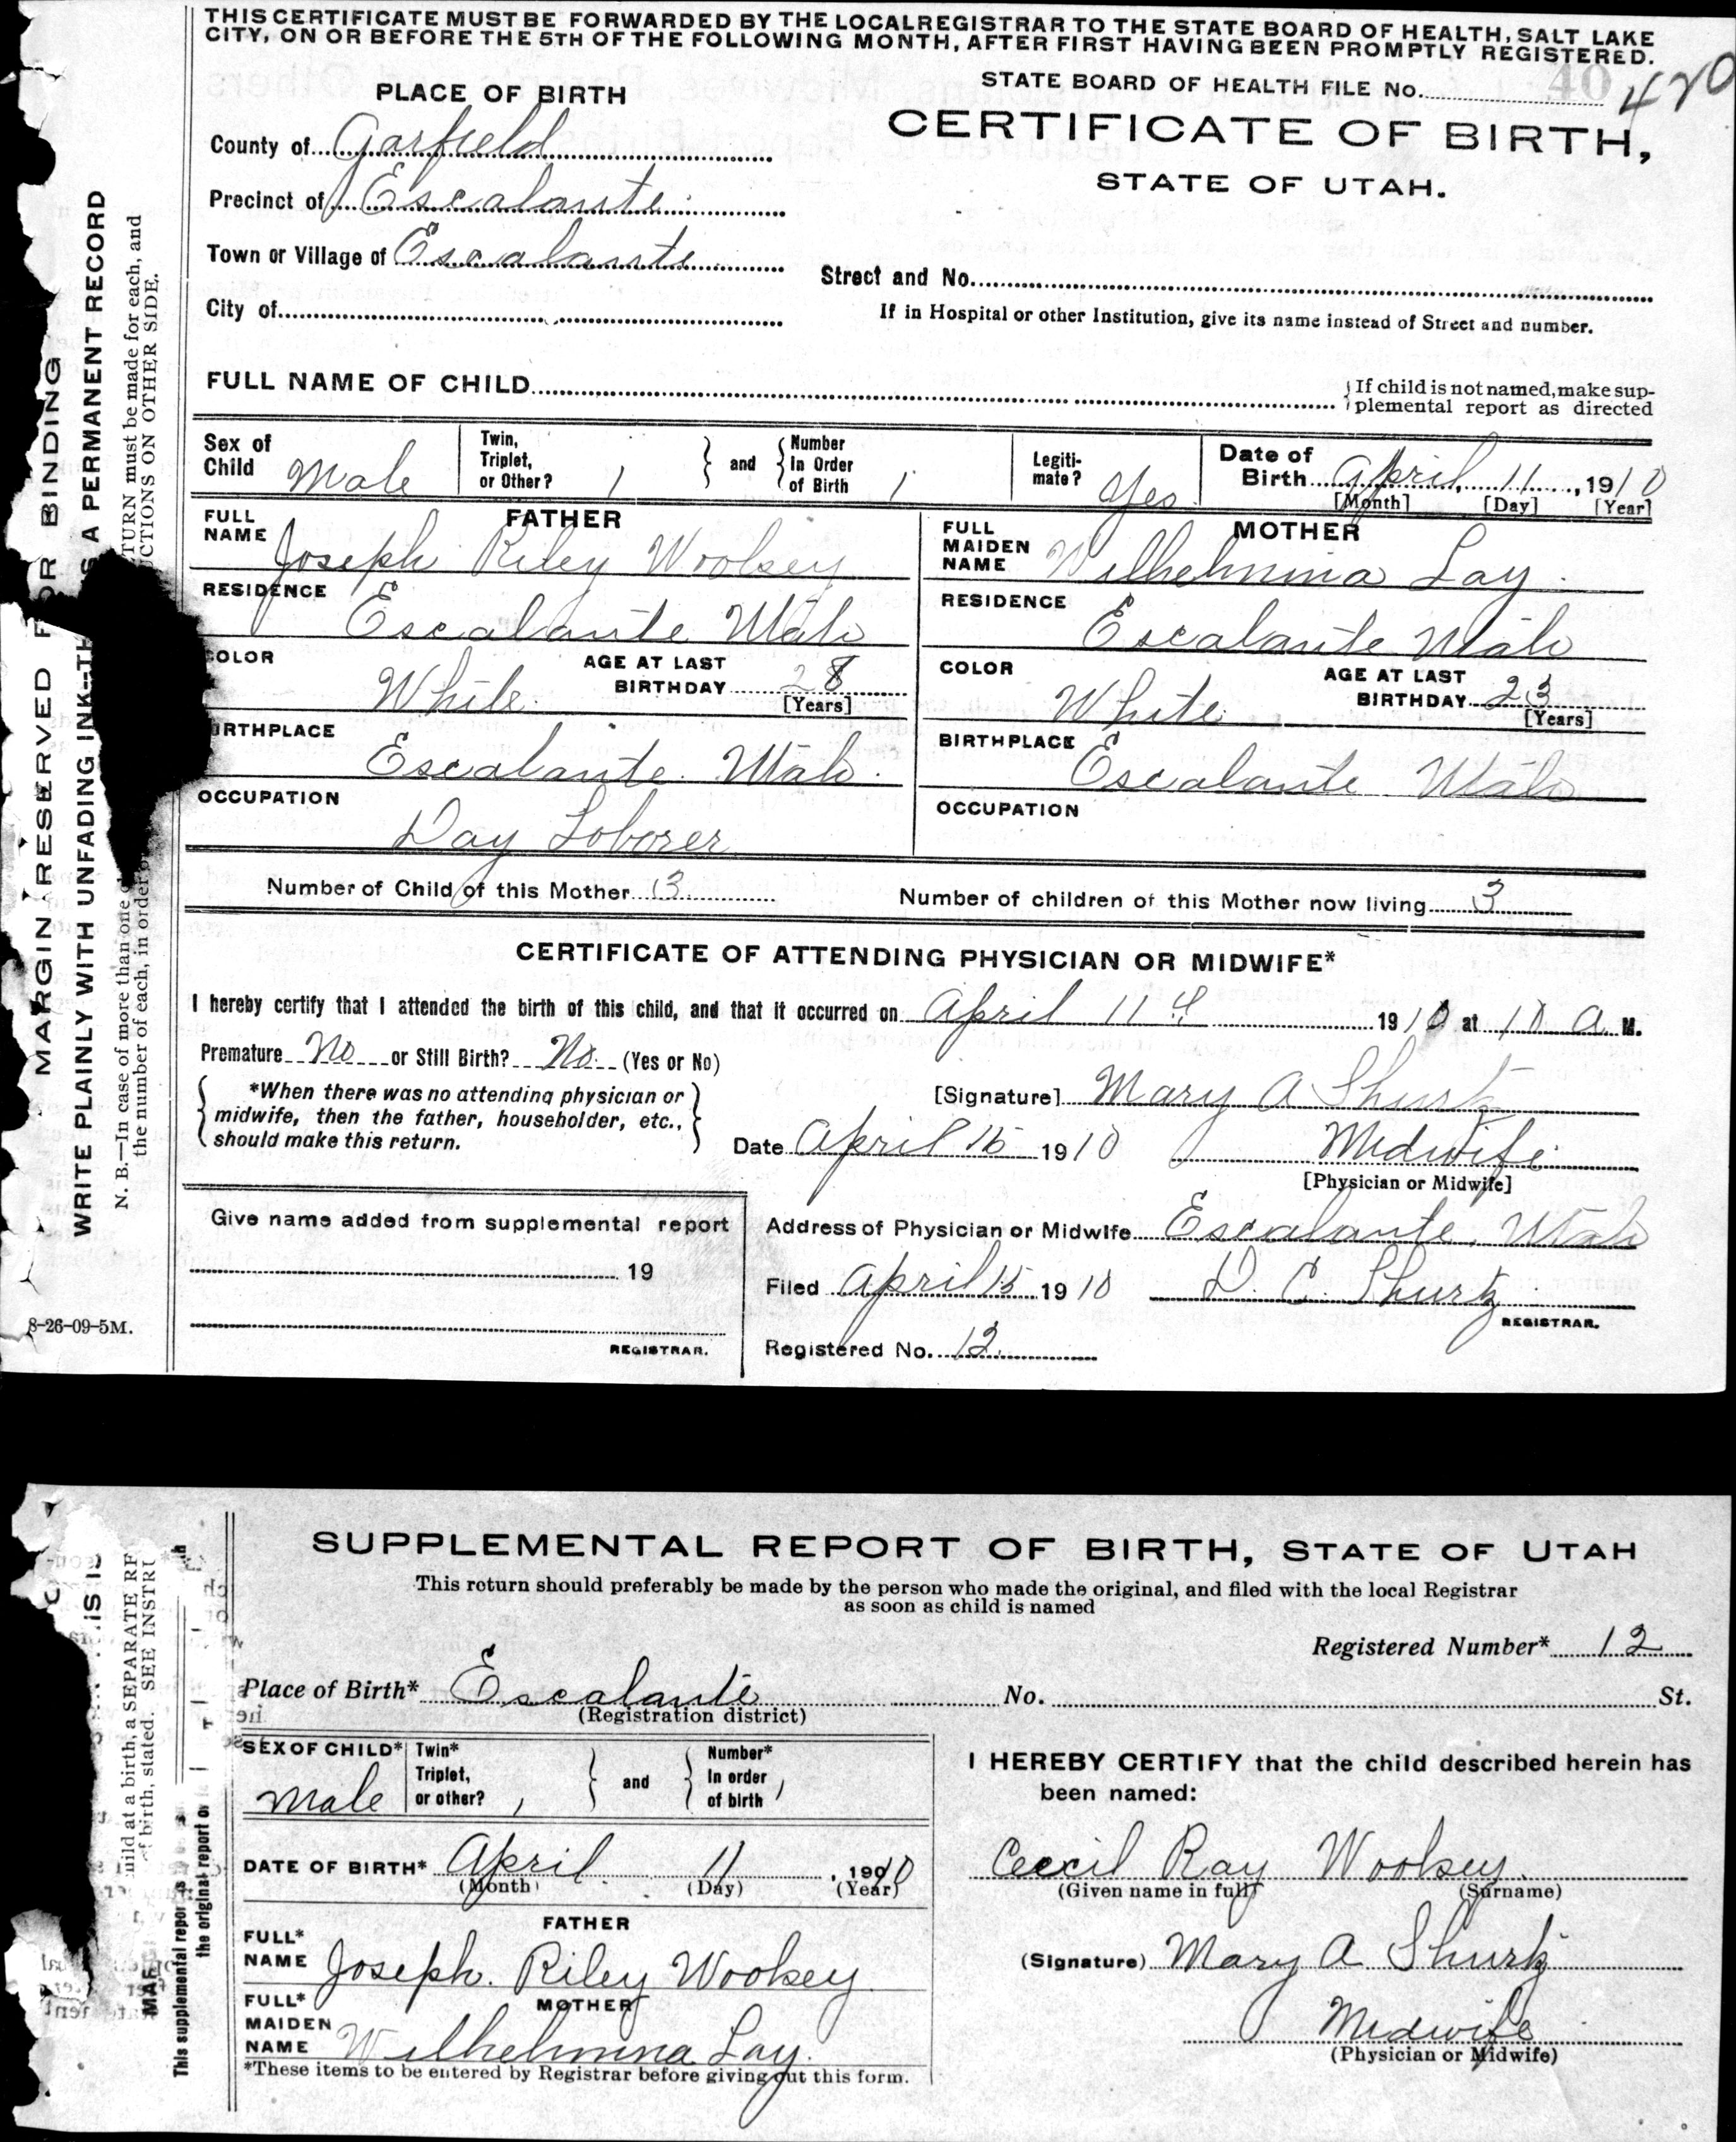 THIS CERTIFICATE MUST BE FORWARDED BY THE LOCAL REGISTRAR TO THE STATE BOARD OF HEALTH, SALT LAKE
CITY, ON OR BEFORE THE 5TH OF THE FOLLOWING MONTH, AFTER FIRST HAVING BEEN PROMPTLY REGISTERED.
STATE BOARD OF HEALTH FILE No. 40 420
PLACE OF BIRTH
CERTIFICATE OF BIRTH,
STATE OF UTAH.
County of Garfield
Precinct of Escalante
Town or Village of Escalante
Street and No.
City of
If in Hospital or other Institution, give its name instead of Street and number.
FULL NAME OF CHILD
If child is not named, make sup-
plemental report as directed
Sex of Child Male
Twin, Triplet, or Other? 1 and Number In Order of Birth 1
Legiti-mate? Yes
Date of Birth April 11, 1910
[Month] [Day] [Year]
FATHER
FULL NAME Joseph Riley Woolsey
RESIDENCE Escalante Utah
COLOR White AGE AT LAST BIRTHDAY 28
[Years]
BIRTHPLACE Escalante Utah
OCCUPATION Day Loborer
MOTHER
FULL MAIDEN NAME Wilhelmina Lay
RESIDENCE Escalante Utah
COLOR White AGE AT LAST BIRTHDAY 23
[Years]
BIRTHPLACE Escalante Utah
OCCUPATION
Number of Child of this Mother 3 Number of children of this Mother now living 3
CERTIFICATE OF ATTENDING PHYSICIAN OR MIDWIFE*
I hereby certify that I attended the birth of this child, and that it occurred on April 11th 1910 at 10 a M.
Premature No or Still Birth? No (Yes or No)
*When there was no attending physician or
midwife, then the father, householder, etc.,
should make this return.
[Signature] Mary A Shurtz
Date April 15 1910 Midwife
[Physician or Midwife]
Give name added from supplemental report
19
REGISTRAR.
Address of Physician or Midwife Escalante, Utah
Filed April 15 1910 D. C. Shurtz
REGISTRAR.
Registered No. 12
8-26-09-5M.
MARGIN RESERVED FOR BINDING
WRITE PLAINLY WITH UNFADING INK--TH IS A PERMANENT RECORD
N. B.—In case of more than one TURN must be made for each, and
the number of each, in order UCTIONS ON OTHER SIDE.
SUPPLEMENTAL REPORT OF BIRTH, STATE OF UTAH
This return should preferably be made by the person who made the original, and filed with the local Registrar
as soon as child is named
Registered Number* 12
Place of Birth* Escalante No. St.
(Registration district)
SEX OF CHILD* Male
Twin* Triplet, or other? 1 and Number* In order of birth 1
DATE OF BIRTH* April 11, 1910
(Month) (Day) (Year)
FATHER
FULL* NAME Joseph Riley Woolsey
MOTHER
FULL* MAIDEN NAME Wilhelmina Lay
*These items to be entered by Registrar before giving out this form.
I HEREBY CERTIFY that the child described herein has
been named:
Ceecil Ray Woolsey
(Given name in full) (Surname)
(Signature) Mary A Shurtz
Midwife
(Physician or Midwife)
IS IS
hild at a birth, a SEPARATE RE
f birth, stated. SEE INSTRU
This supplemental report is
the original report